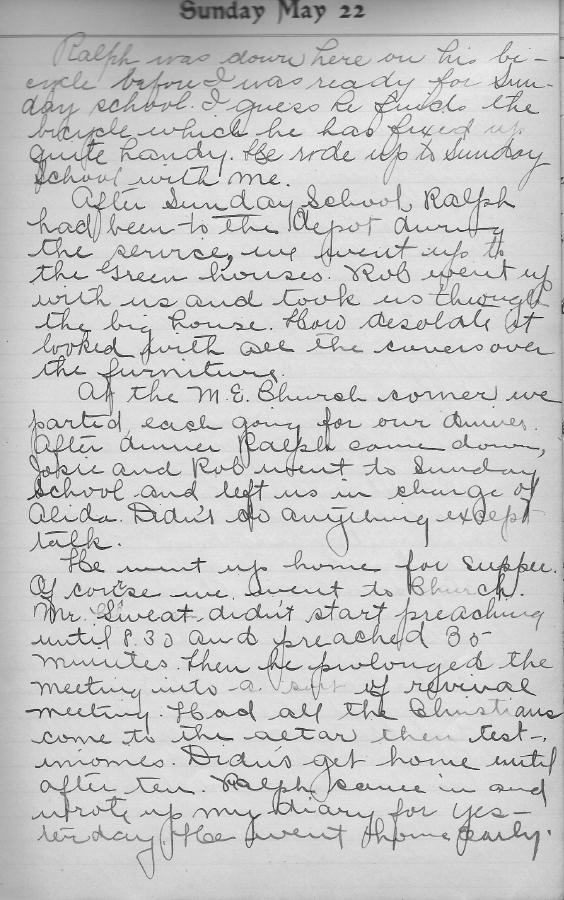 Sunday May 22
Ralph was down here on his bi-
cycle before I was ready for Sun-
day school. I guess he finds the
bicycle which he has fixed up
quite handy. He rode up to Sunday
School with me.
After Sunday School, Ralph
had been to the depot during
the service, we went up to
the Green houses. Rob went up
with us and took us through
the big house. How desolate it
looked with all the covers over
the furniture.
At the M.E. Church corner we
parted, each going for our dinner.
After dinner Ralph came down,
Josie and Rob went to Sunday
School and left us in charge of
Alida. Didn't do anything except
talk.
He went up home for supper.
Of course we went to Church.
Mr. Sweat didn't start preaching
until 8.30 and preached 35
minutes. Then he prolonged the
meeting into a sort of revival
meeting. Had all the Christians
come to the altar then test-
imonies. Didn't get home until
after ten. Ralph came in and
wrote up my diary for yes-
terday. He went home early.